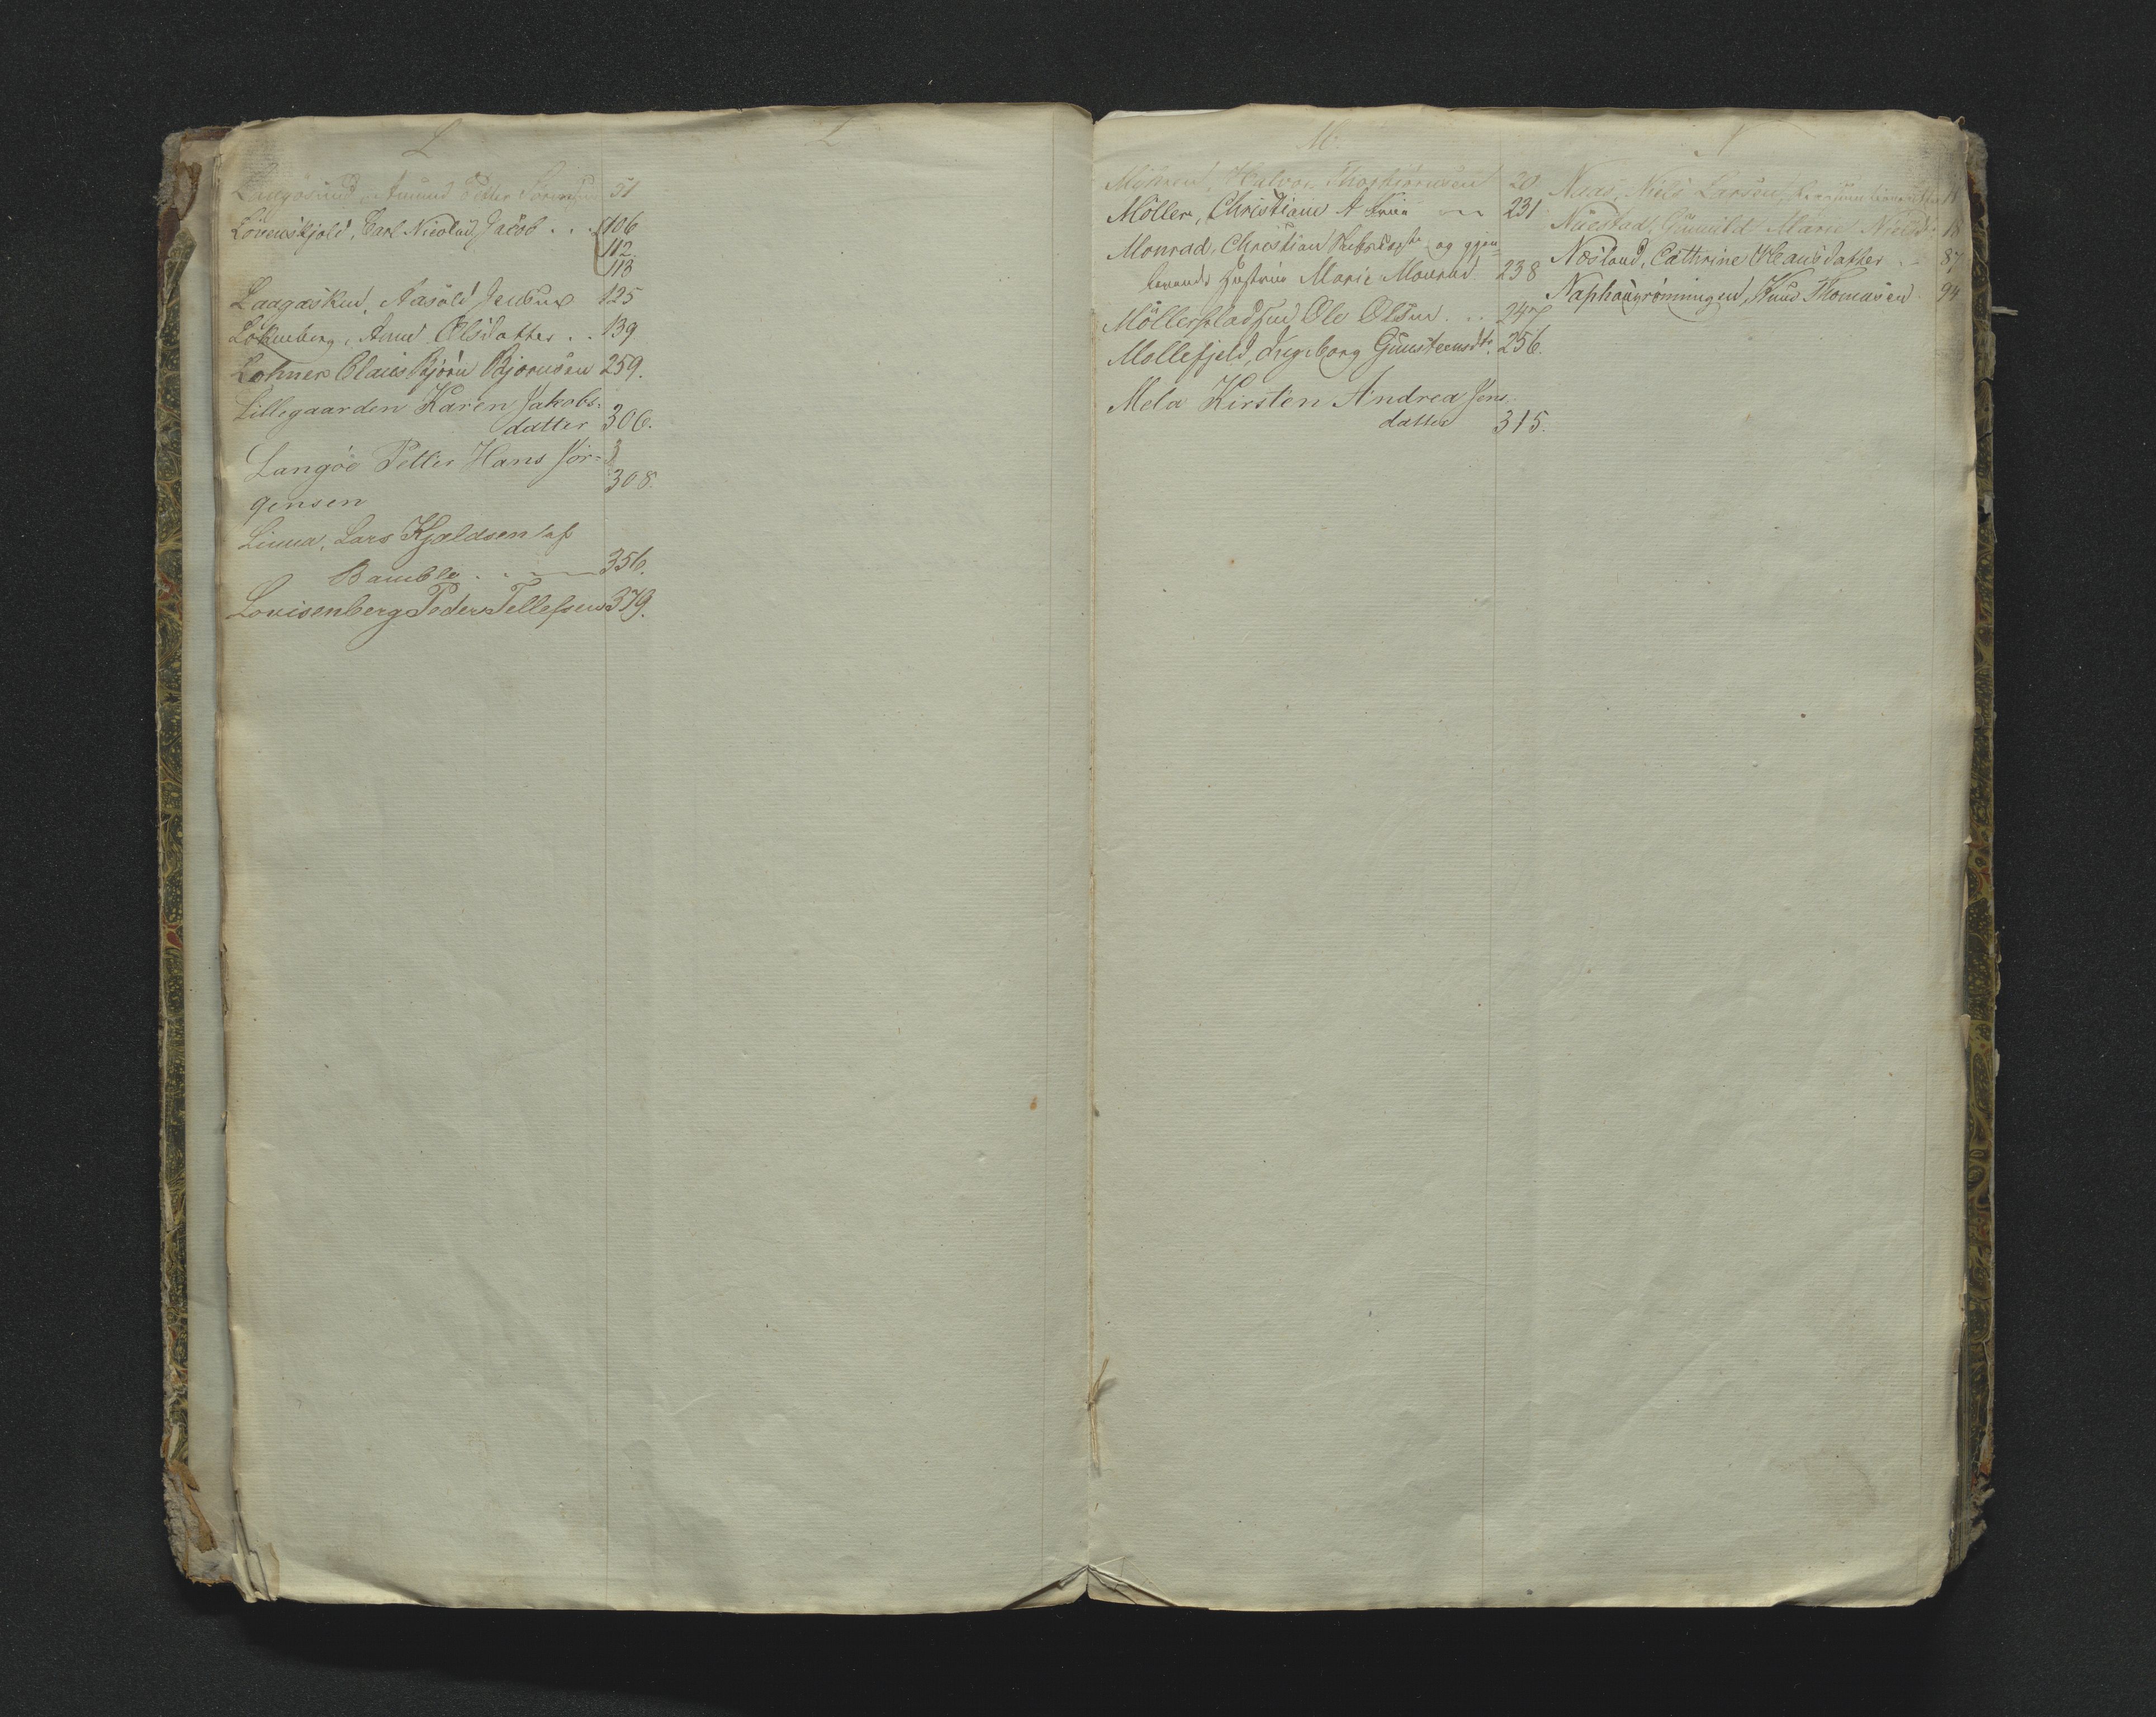 L
L
Langösund, Amund Petter Sörensen 51
Lövenskjold, Carl Nicolai Jacob . . . 106
112.
113
Laagaskud, Aasold Jensen 125
Lökneberg, Anne Olsdatter . . 139
Lohner Claus Bjørn Bjørnsen 259.
Lillegaarden Karen Jakobs-
datter 306.
Langöe Petter Hans Jør-
gensen 308.
Linna, Lars Kjeldsen af
Bamble . . 356.
Lovisenberg Peder Tellefsen 379.
M.
Myhren, Halvor Thorbiörnsen 20
Möller, Christiane A 231
Monrad, Christian og gjen-
levende Hustrue Marie Monrad. 238
Möllerpladsen Ole Olsen . . 247
Mollefjeld, Ingeborg Gunsteensdtr. 256.
Mela Kirsten Andrea Jens-
datter 315.
N
Næs, Niels Larsen 11
Næstad, Gunild Marie Nielsd. 18
Næsland, Cathrine Oleaisdatter . . 87
Naphougrönningen, Knud Thomasen . 94